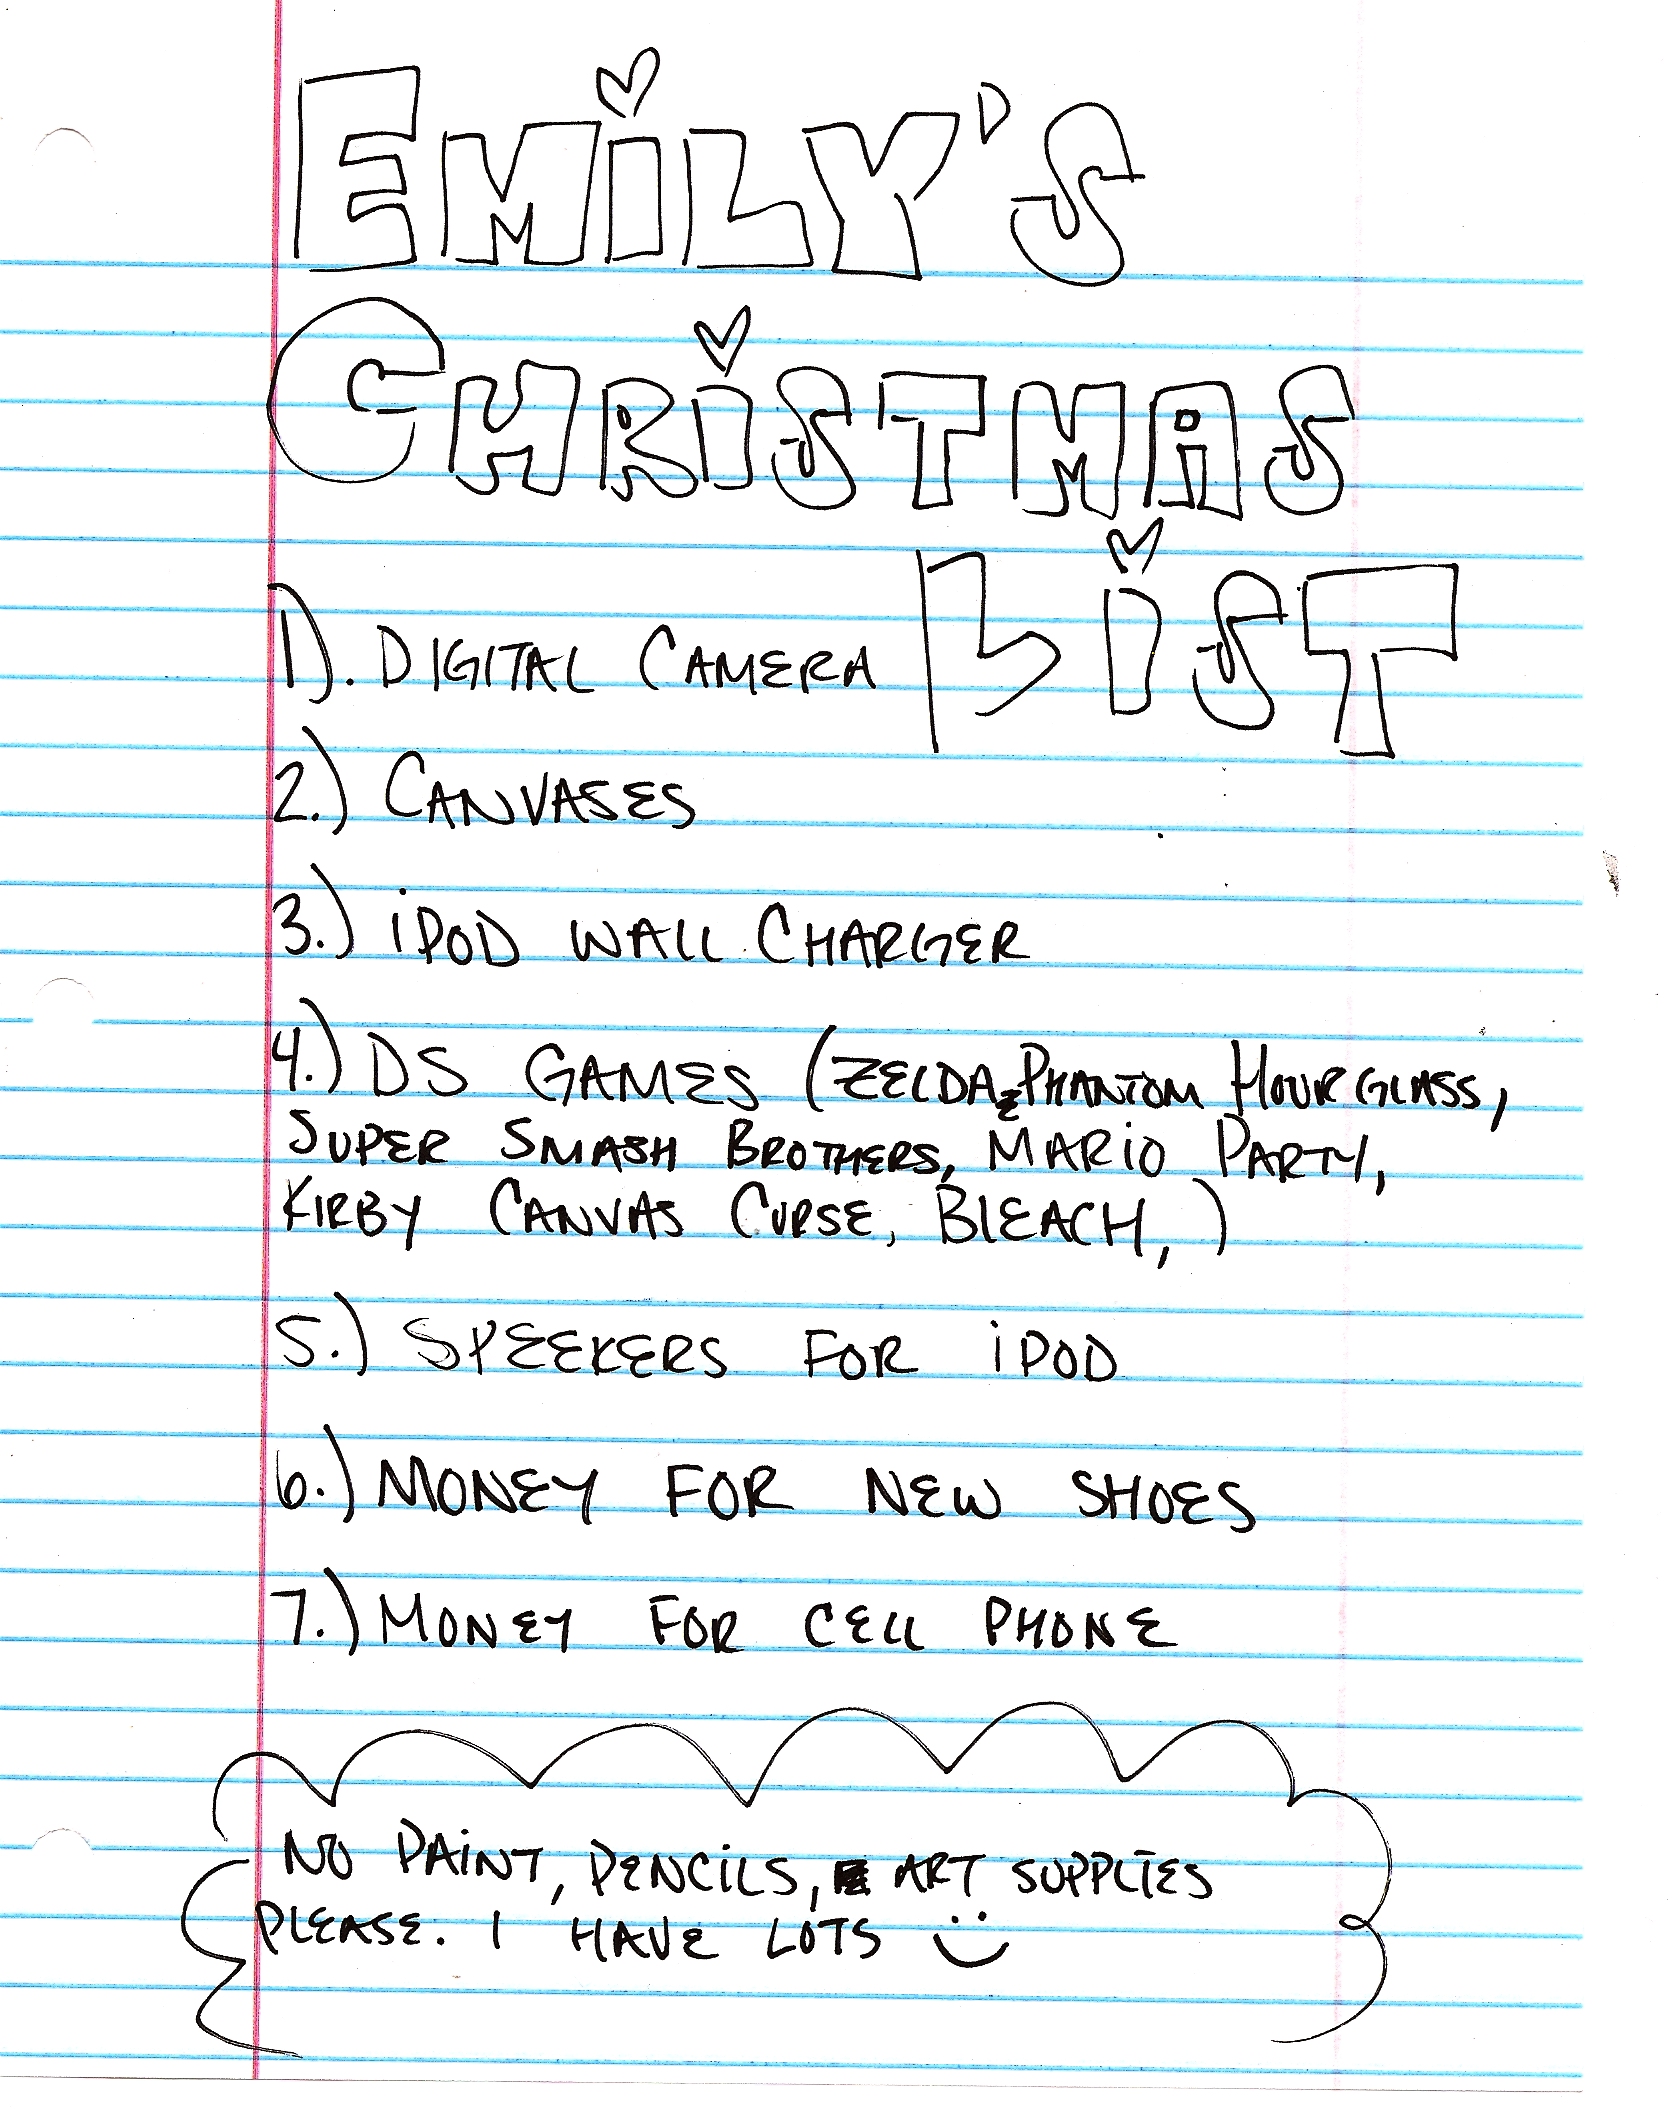 EMiLY'S
CHRiSTMAS
LiST
1). DIGITAL CAMERA
2.) CANVASES
3.) iPOD WALL CHARGER
4.) DS GAMES (ZELDA: PHANTOM HOURGLASS,
SUPER SMASH BROTHERS, MARiO PARTY,
KIRBY CANVAS CURSE, BLEACH, )
5.) SPEEKERS FOR iPOD
6.) MONEY FOR NEW SHOES
7.) MONEY FOR CELL PHONE
NO PAiNT, PENCiLS, ART SUPPLIES
PLEASE. I HAVE LOTS